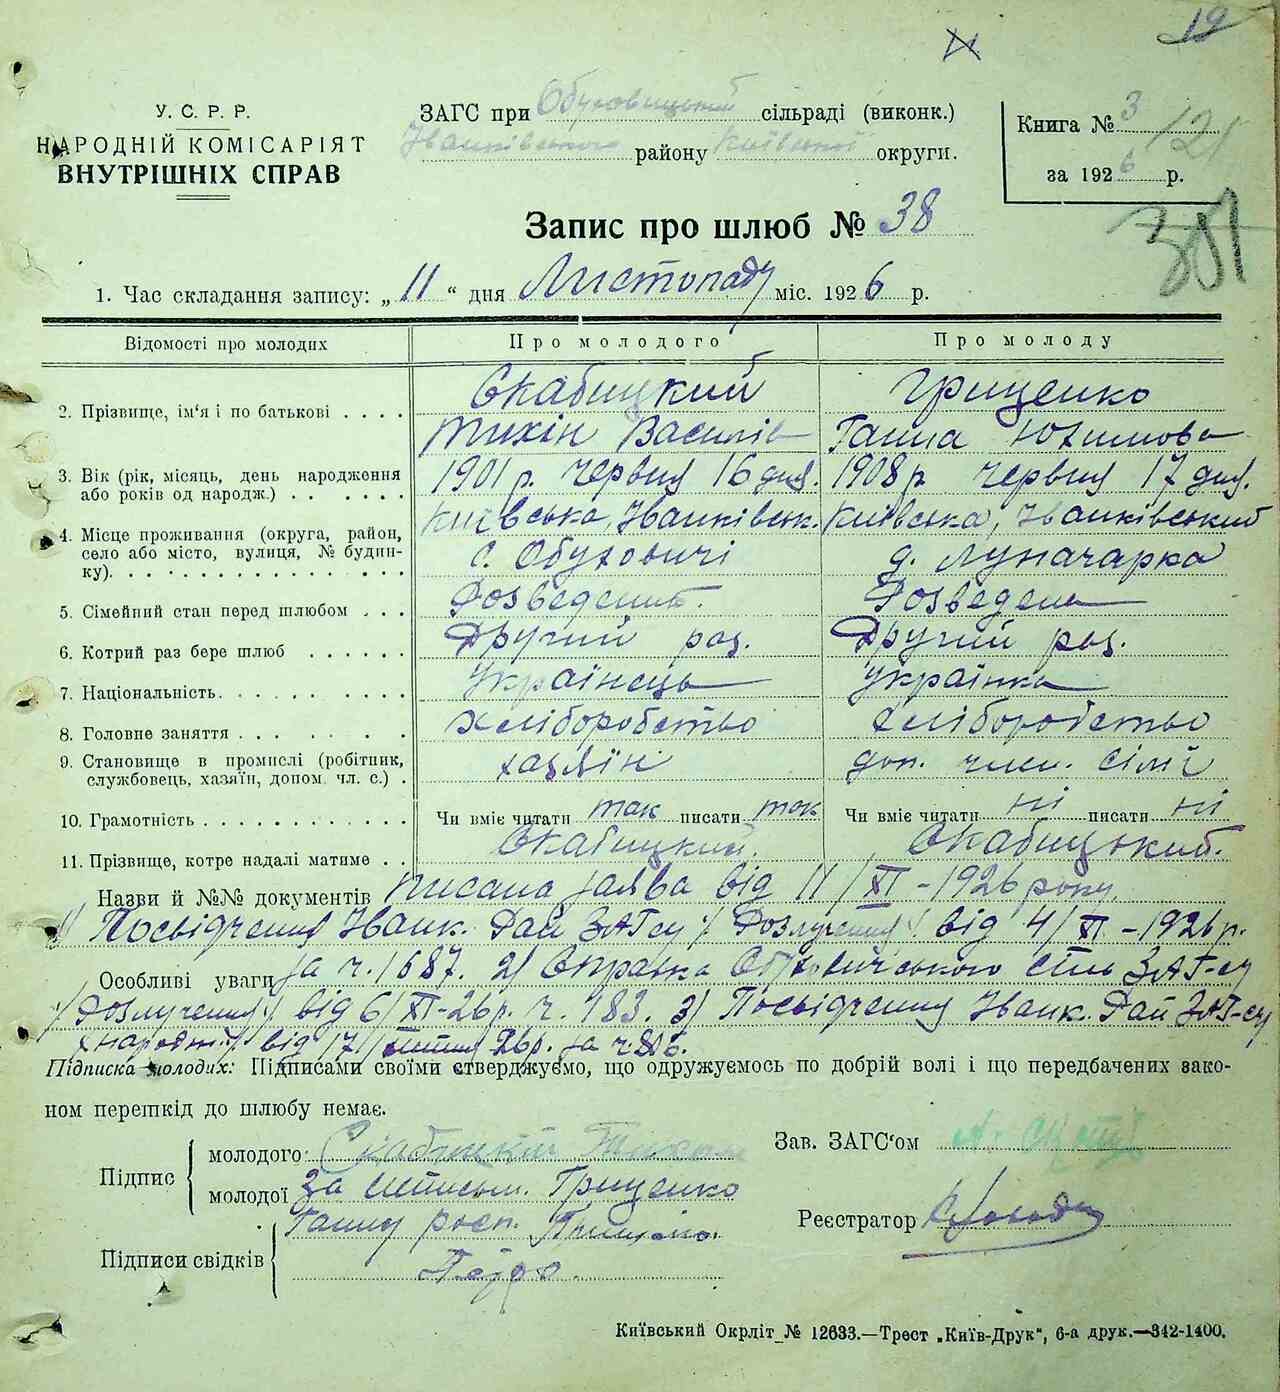 19
У. С. Р. Р.
НАРОДНІЙ КОМІСАРІЯТ
ВНУТРІШНІХ СПРАВ
ЗАГС при Обуховицькій сільраді (виконк.)
Іванківського району Київської округи.
Книга № 3
за 1926 р.
Запис про шлюб № 38
1. Час складання запису: „11“ дня Листопаду міс. 1926 р.
Відомості про молодих Про молодого Про молоду
2. Прізвище, ім'я і по батькові . . . . Скабицкий Гриценко
Тихін Василів Ганна Юхимова
3. Вік (рік, місяць, день народження або років од народж.) . . . . . . 1901 р. червня 16 дня. 1908 р. червня 17 дня.
4. Місце проживання (округа, район, село або місто, вулиця, № будинку). Київська, Іванківськ. Київська, Іванківський
с. Обуховичі д. Луначарка
5. Сімейний стан перед шлюбом . . . Розведений. Розведена
6. Котрий раз бере шлюб . . . . . . Другий раз. Другий раз.
7. Національність. Українець Українка
8. Головне заняття . . . . . . . . хліборобство хліборобство
9. Становище в промислі (робітник, службовець, хазяїн, допом. чл. с.) . хазяїн доп. член. сімї
10. Грамотність . . . . . . . . . . . . Чи вміє читати так писати так Чи вміє читати ні писати ні
11. Прізвище, котре надалі матиме . . Скабицкий. Скабицький.
Назви й №№ документів писана заява від 11/XI-1926 року.
1) Посвідчення Іванк. Рай ЗАГСу /Розлучення/. від 4/XI-1926 р.
Особливі уваги за ч. 1687. 2) Справка Обуховичського сіль ЗАГ-су
/Розлучення/ від 6/XI-26 р. ч. 183. 3) Посвідчення Іванк. Рай ЗАГ-су
/народж./ від 17/ липня 26 р. за ч.
Підписка молодих: Підписами своїми стверджуємо, що одружуємось по добрій волі і що передбачених законом перешкід до шлюбу немає.
Підпис
молодого Скабицкий Тихон
молодої За неписьм. Гриценко
Ганну росп.
Підписи свідків
Зав. ЗАГС'ом
Реєстратор
Київський Окрліт № 12633.—Трест „Київ-Друк“, 6-а друк.—342-1400.